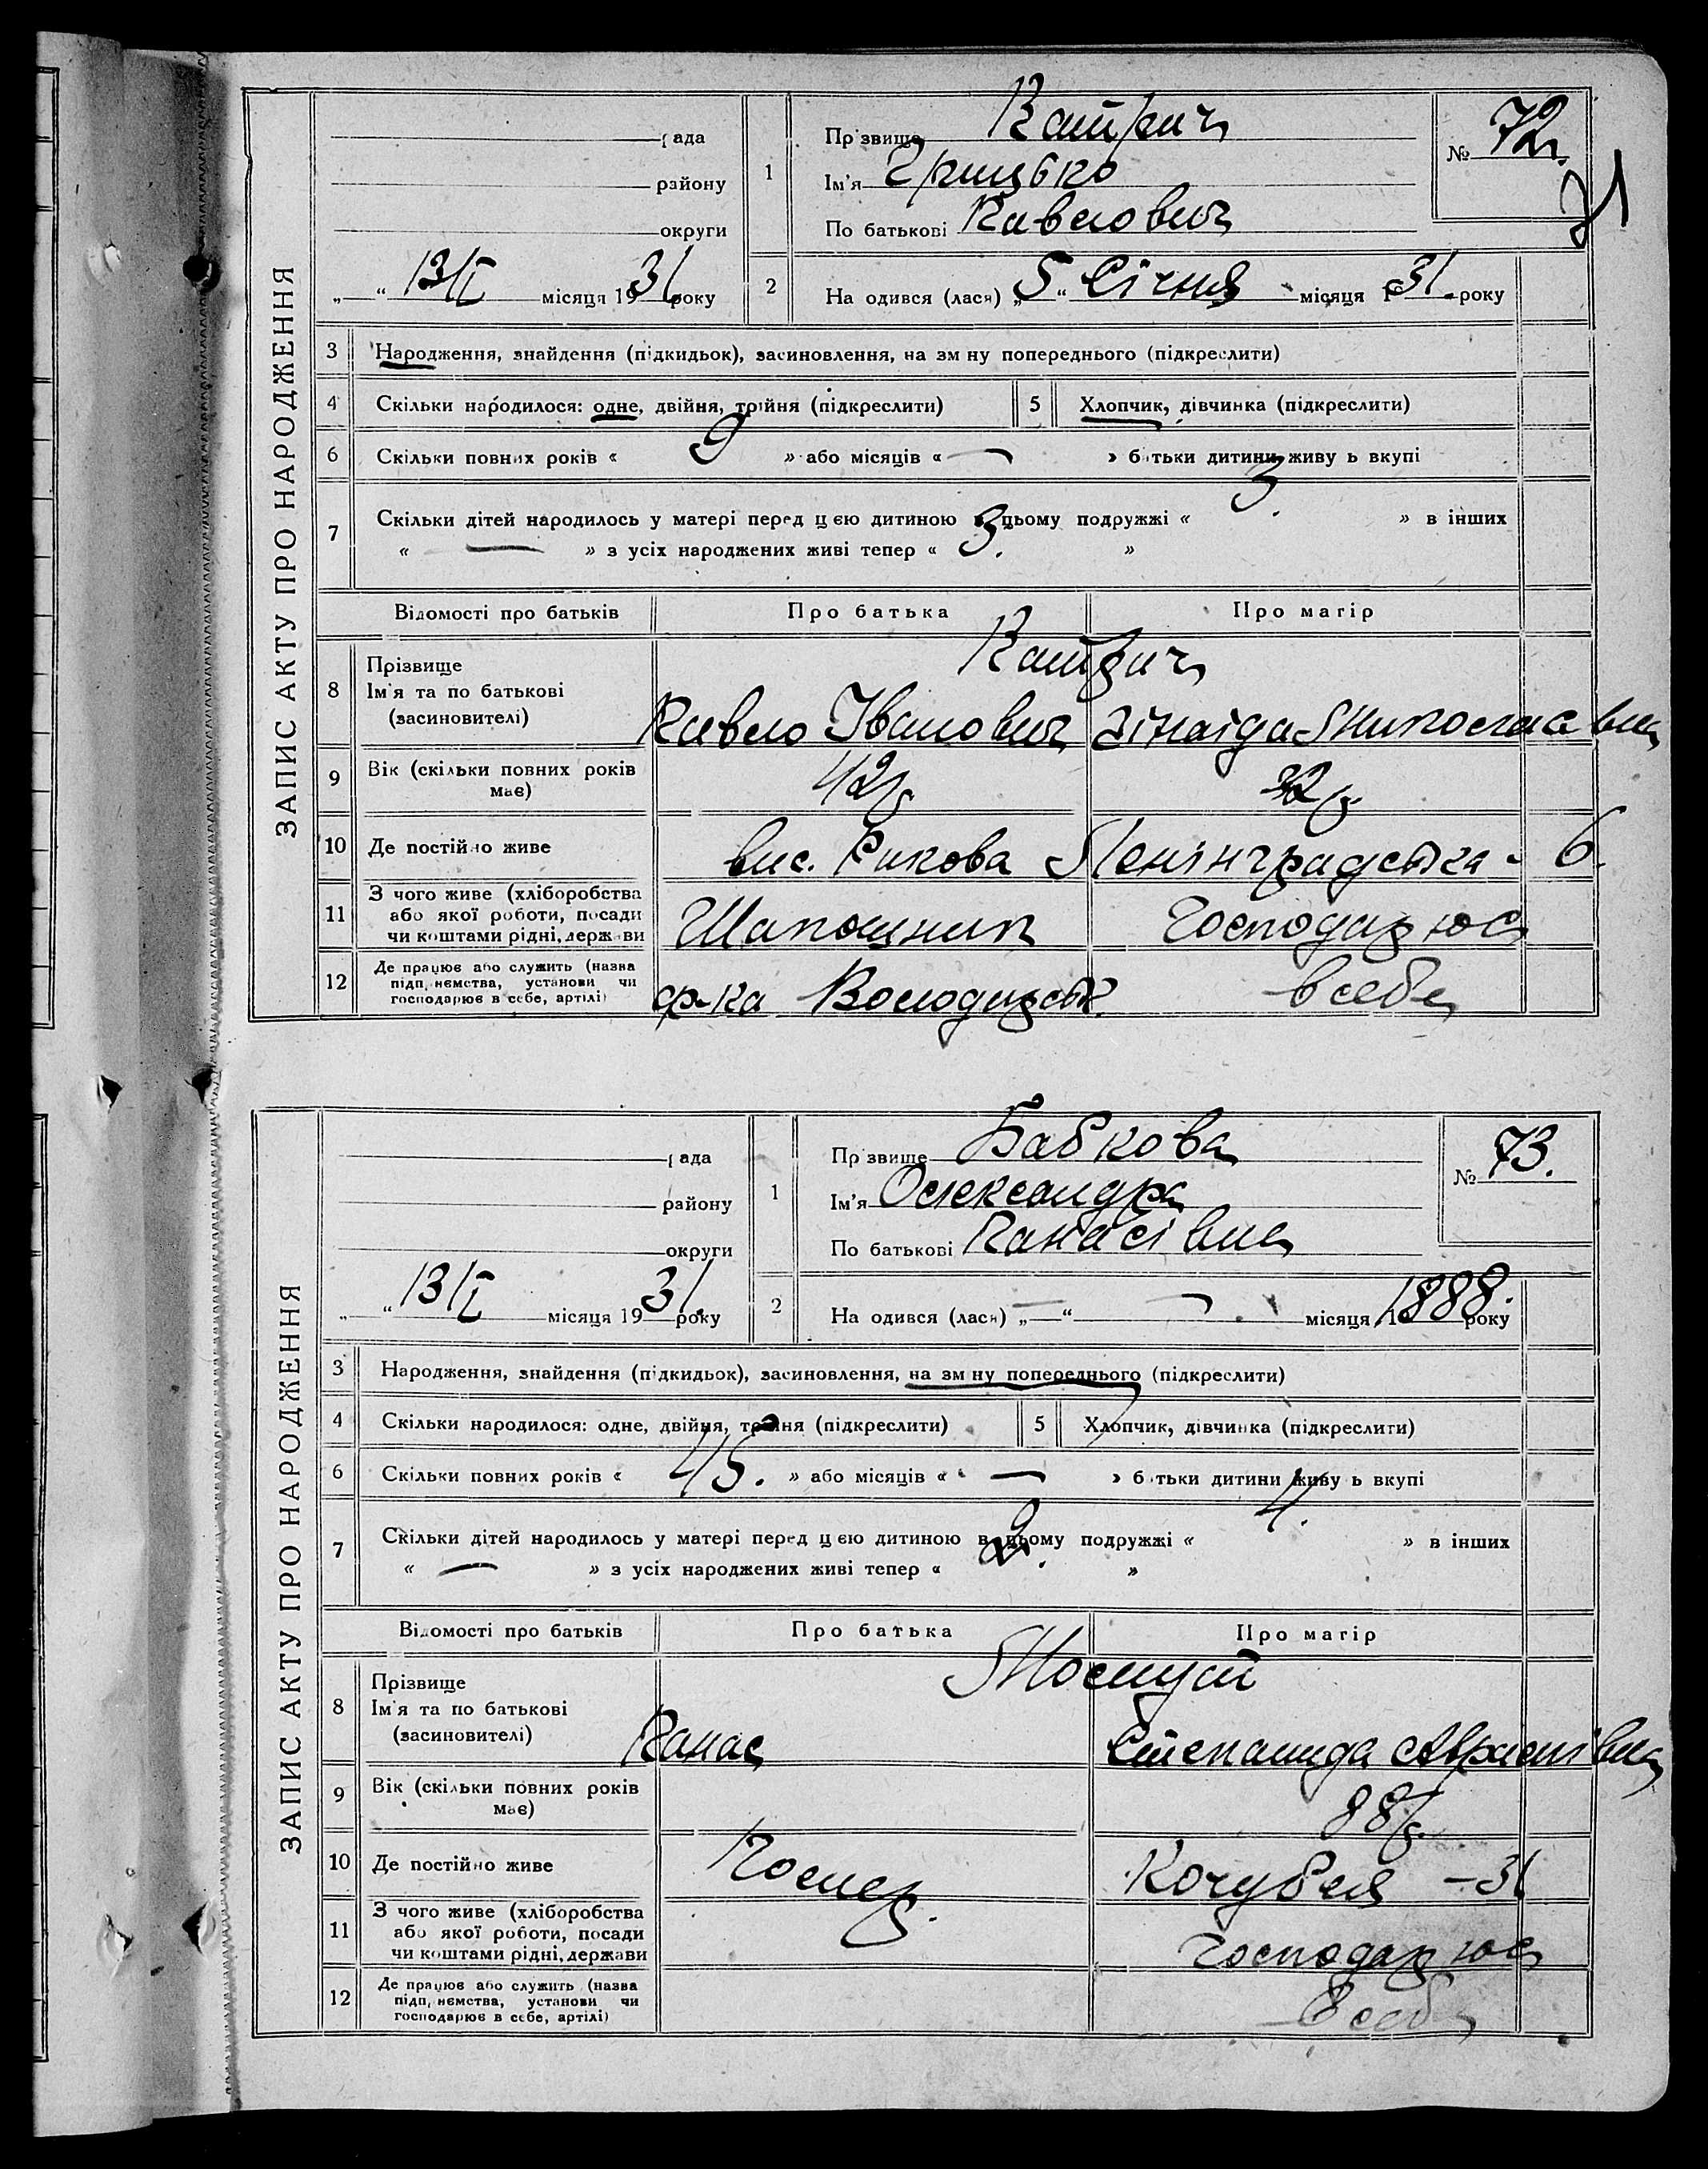 ЗАПИС АКТУ ПРО НАРОДЖЕННЯ
рада
району
округи
„ “ 13/І місяця 1931 року
1
Прізвище Катрич
Ім'я Грицько
По батькові Павлович
№ 72.
31
2
На одився (лася) „5“ Січня місяця 1 31. року
3 Народження, знайдення (підкидьок), засиновлення, на зм ну попереднього (підкреслити)
4 Скільки народилося: одне, двійня, трійня (підкреслити)
5 Хлопчик, дівчинка (підкреслити)
6 Скільки повних років « 9 » або місяців « — » б тьки дитини живу ь вкупі
7 Скільки дітей народилось у матері перед цією дитиною в цьому подружжі « 3. » в інших
« — » з усіх народжених живі тепер « 3. »
Відомості про батьків Про батька Про матір
8 Прізвище
Ім'я та по батькові
(засиновителі)
Катрич
Павло Іванович Зінаїда Миколаївна
9 Вік (скільки повних років
має)
42 р. 32 р.
10 Де постійно живе вис. Рикова Ленінградська - 6.
11 З чого живе (хліборобства
або якої роботи, посади
чи коштами рідні, держави
Шапошник Господарює
12 Де працює або служить (назва
підп, немства, установи чи
господарює в себе, артілі)
ф-ка Володарськ. в себе
ЗАПИС АКТУ ПРО НАРОДЖЕННЯ
рада
району
округи
„ “ 13/І місяця 1931. року
1
Прізвище Бабкова
Ім'я Олександра
По батькові Панасівна
№ 73.
2
На одився (лася) „—“ — місяця 1888. року
3 Народження, знайдення (підкидьок), засиновлення, на зм ну попереднього (підкреслити)
4 Скільки народилося: одне, двійня, трійня (підкреслити)
5 Хлопчик, дівчинка (підкреслити)
6 Скільки повних років « 45. » або місяців « — » б тьки дитини живу ь вкупі
7 Скільки дітей народилось у матері перед цією дитиною в цьому подружжі « 4. » в інших
« — » з усіх народжених живі тепер « 2. »
Відомості про батьків Про батька Про матір
8 Прізвище
Ім'я та по батькові
(засиновителі)
Панас Степанида
9 Вік (скільки повних років
має)
88 р.
10 Де постійно живе Помер. Кочубея - 31
11 З чого живе (хліборобства
або якої роботи, посади
чи коштами рідні, держави
Господарює
12 Де працює або служить (назва
підп, немства, установи чи
господарює в себе, артілі)
в себе